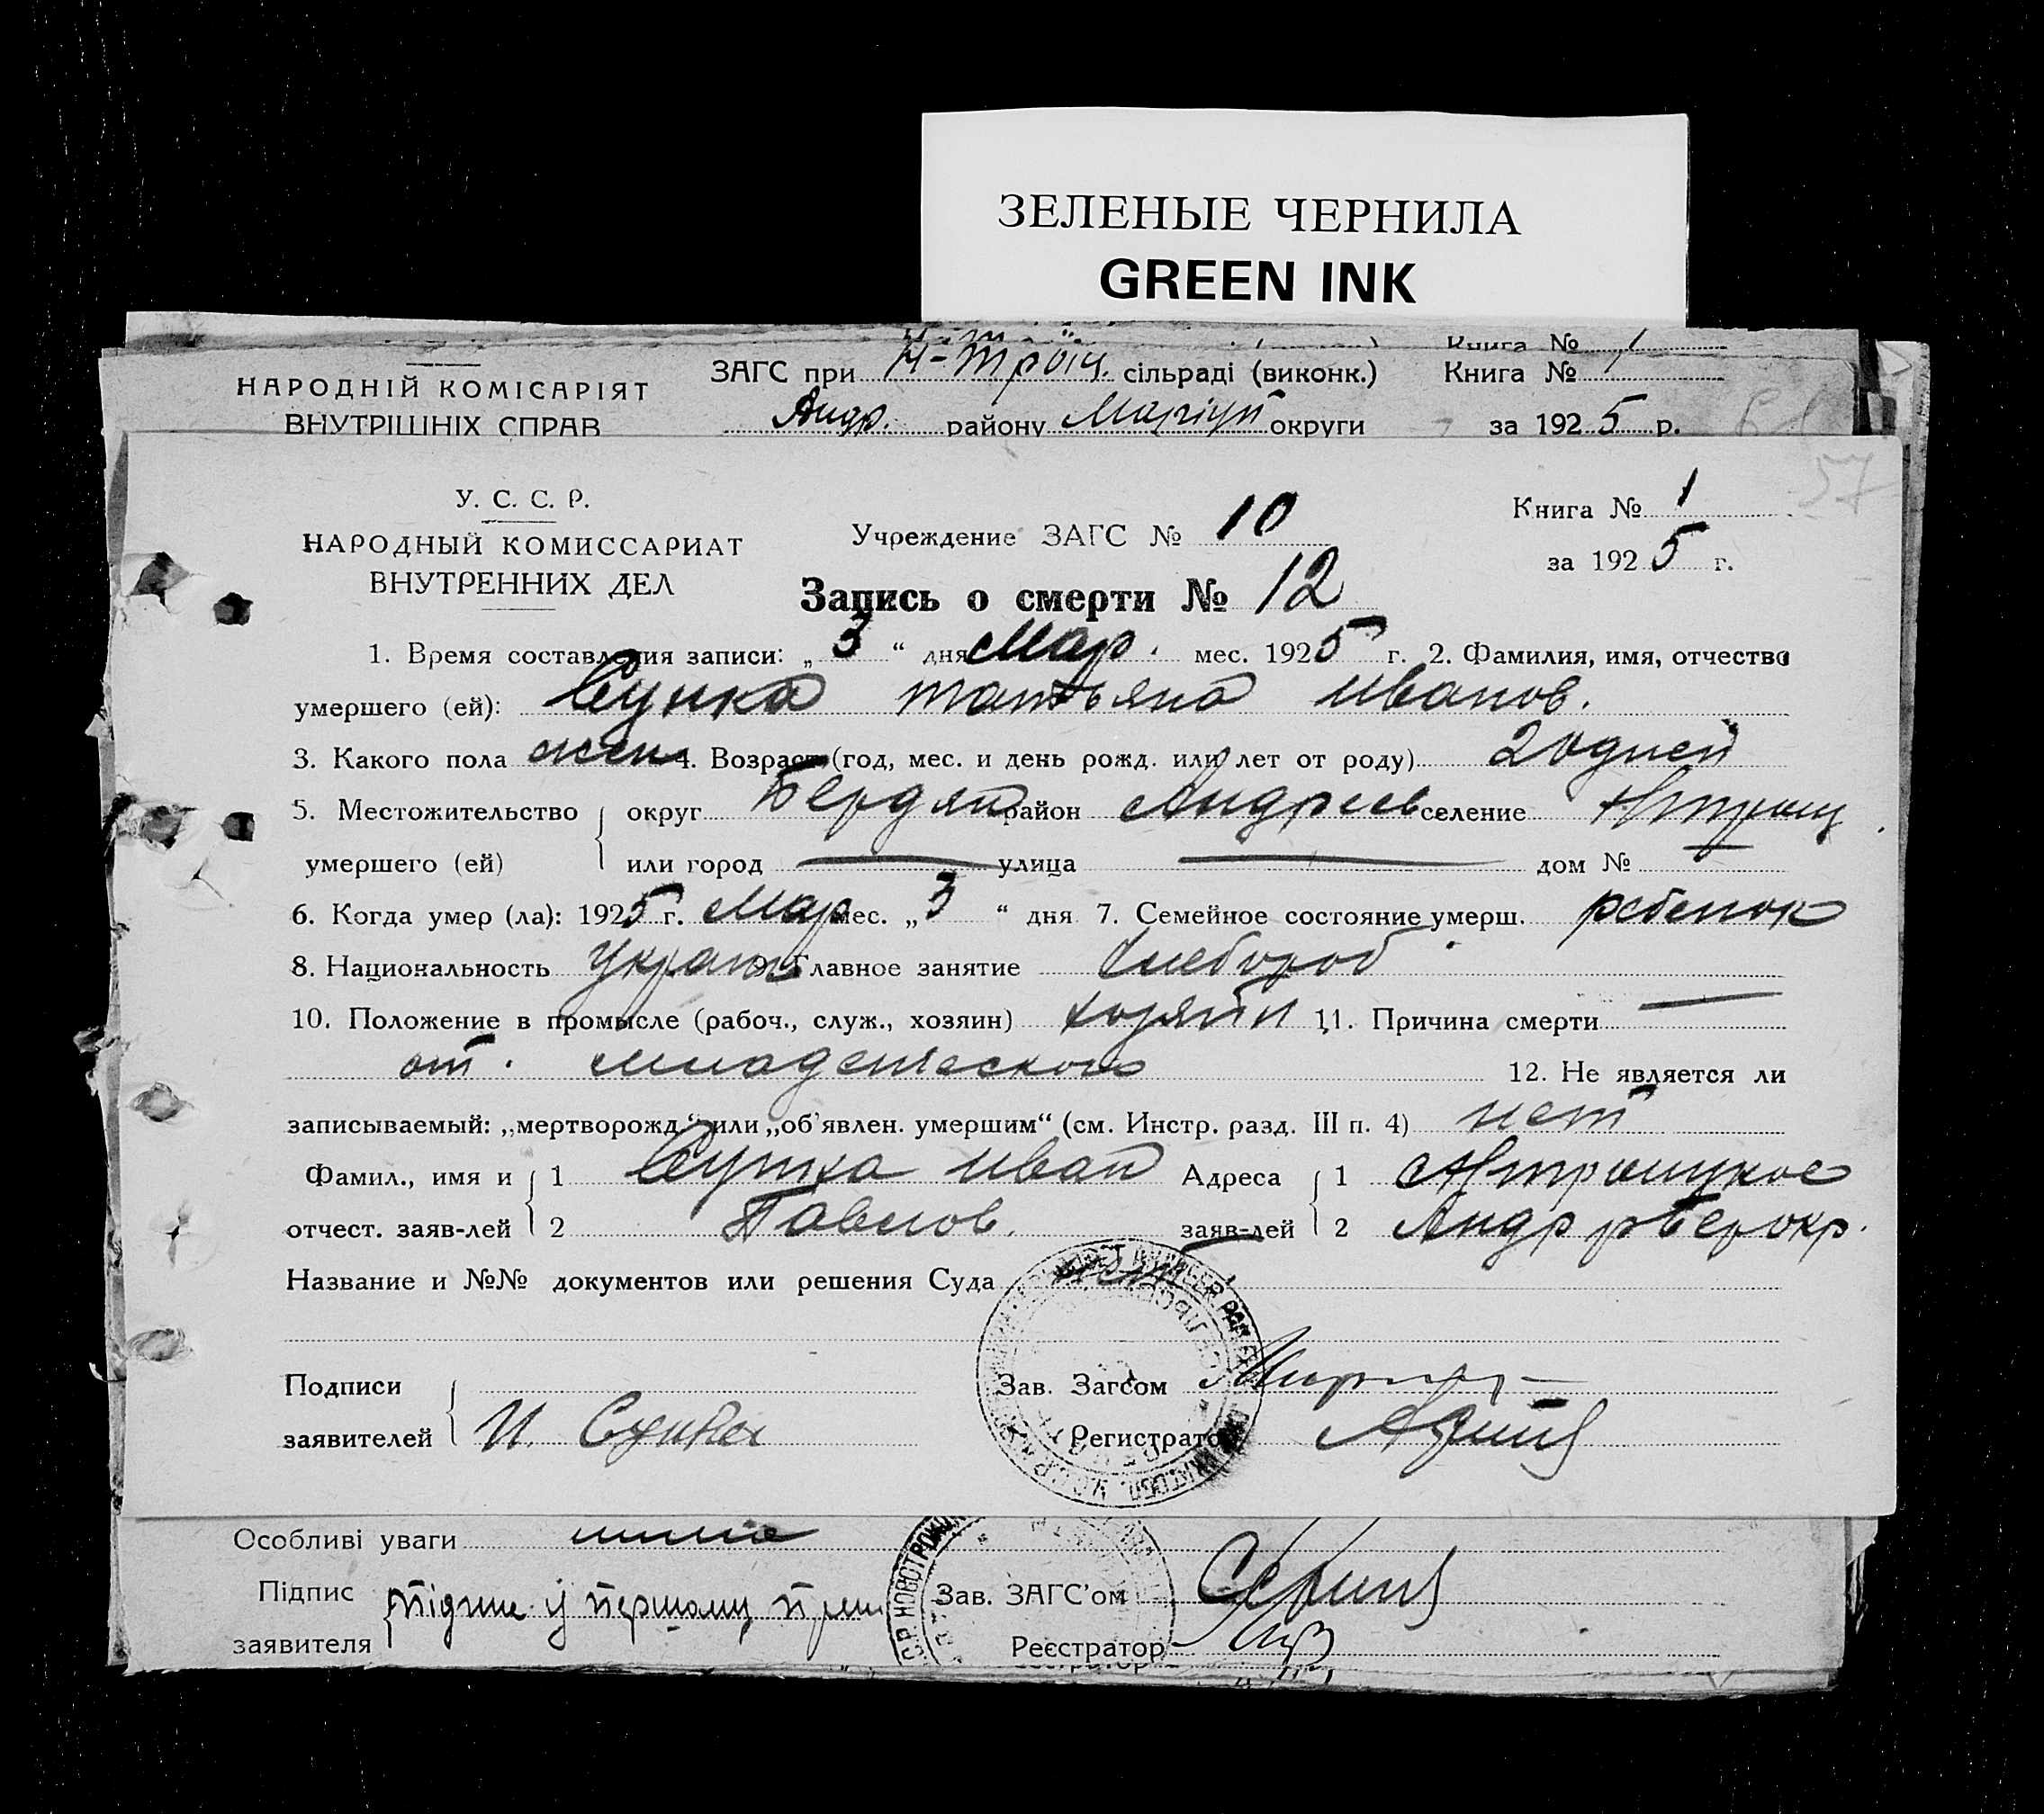 ЗЕЛЕНЫЕ ЧЕРНИЛА
GREEN INK
Книга № 1
НАРОДНІЙ КОМІСАРІЯТ
ВНУТРІШНІХ СПРАВ
ЗАГС при Н-Троїц. сільраді (виконк.) Книга № 1
Андр. району Маріуп округи за 1925 р.
57
У. С. С. Р.
НАРОДНЫЙ КОМИССАРИАТ
ВНУТРЕННИХ ДЕЛ
Учреждение ЗАГС № 10
Книга № 1
за 1925 г.
Запись о смерти № 12
1. Время составления записи: „3“ дня Мар. мес. 1925 г. 2. Фамилия, имя, отчество
умершего (ей): Татьяна Иванов.
3. Какого пола жен 4. Возраст (год, мес. и день рожд. или лет от роду) 20 дней
5. Местожительство округ Бердян район Андреев селение Нтроиц.
умершего (ей) или город — улица — дом № —
6. Когда умер (ла): 1925 г. Мар мес. „3“ дня 7. Семейное состояние умерш. ребенок
8. Национальность Украин 9. Главное занятие Хлебороб
10. Положение в промысле (рабоч., служ., хозяин) хозяин 11. Причина смерти —
от. младенческого 12. Не является ли
записываемый: „мертворожд.“ или „об'явлен. умершим“ (см. Инстр. разд. III п. 4) нет
Фамил., имя и 1 Иван Адреса 1 Нтроицкое
отчест. заяв-лей 2 Павлов. заяв-лей 2 Андр р Бер окр.
Название и №№ документов или решения Суда нет
Подписи Зав. Загсом
заявителей И. Регистратор
Особливі уваги
Підпис Підпис у першому прим Зав. ЗАГС'ом
заявителя Реєстратор